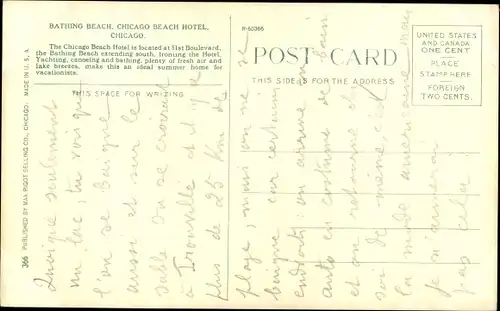 BATHING BEACH, CHICAGO BEACH HOTEL,
CHICAGO.
The Chicago Beach Hotel is located at 51st Boulevard,
the Bathing Beach extending south, fronting the Hotel.
Yachting, canoeing and bathing, plenty of fresh air and
lake breezes, make this an ideal summer home for
vacationists.
THIS SPACE FOR WRITING
R-60366
POST CARD
THIS SIDE IS FOR THE ADDRESS
UNITED STATES
AND CANADA
ONE CENT
PLACE
STAMP HERE
FOREIGN
TWO CENTS.
366 PUBLISHED BY MAX RIGOT SELLING CO., CHICAGO. MADE IN U. S. A.
Quoique seulement
un lac, tu vois que
l'on se baigne
aussi et sur le
sable on se croirait
à Trouville et il y a
plus de 25 Km de
plage, mais on ne se
baigne que certains
endroits: on arrive en
auto en costume de bain
et on retourne chez
soi de même c'est
la mode americaine mais
je n'aimerai
pas cela!